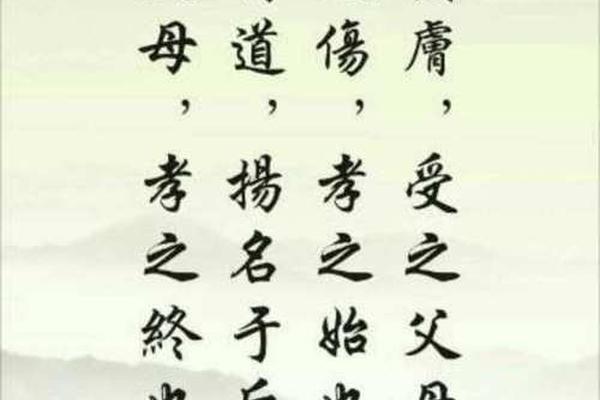 膚，受之父母
傷，孝之始也
道，揚名于后
母，孝之終也